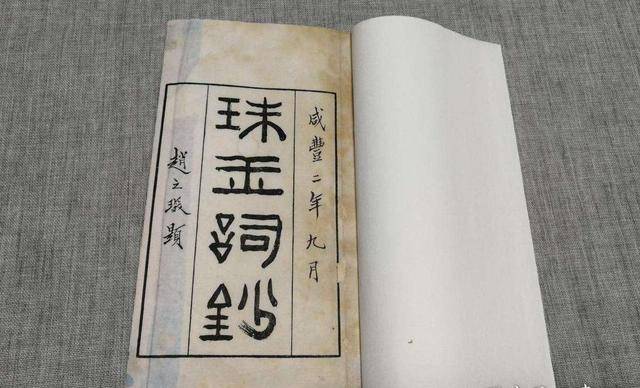 咸豐二年九月
珠玉詞鈔
趙之琛題